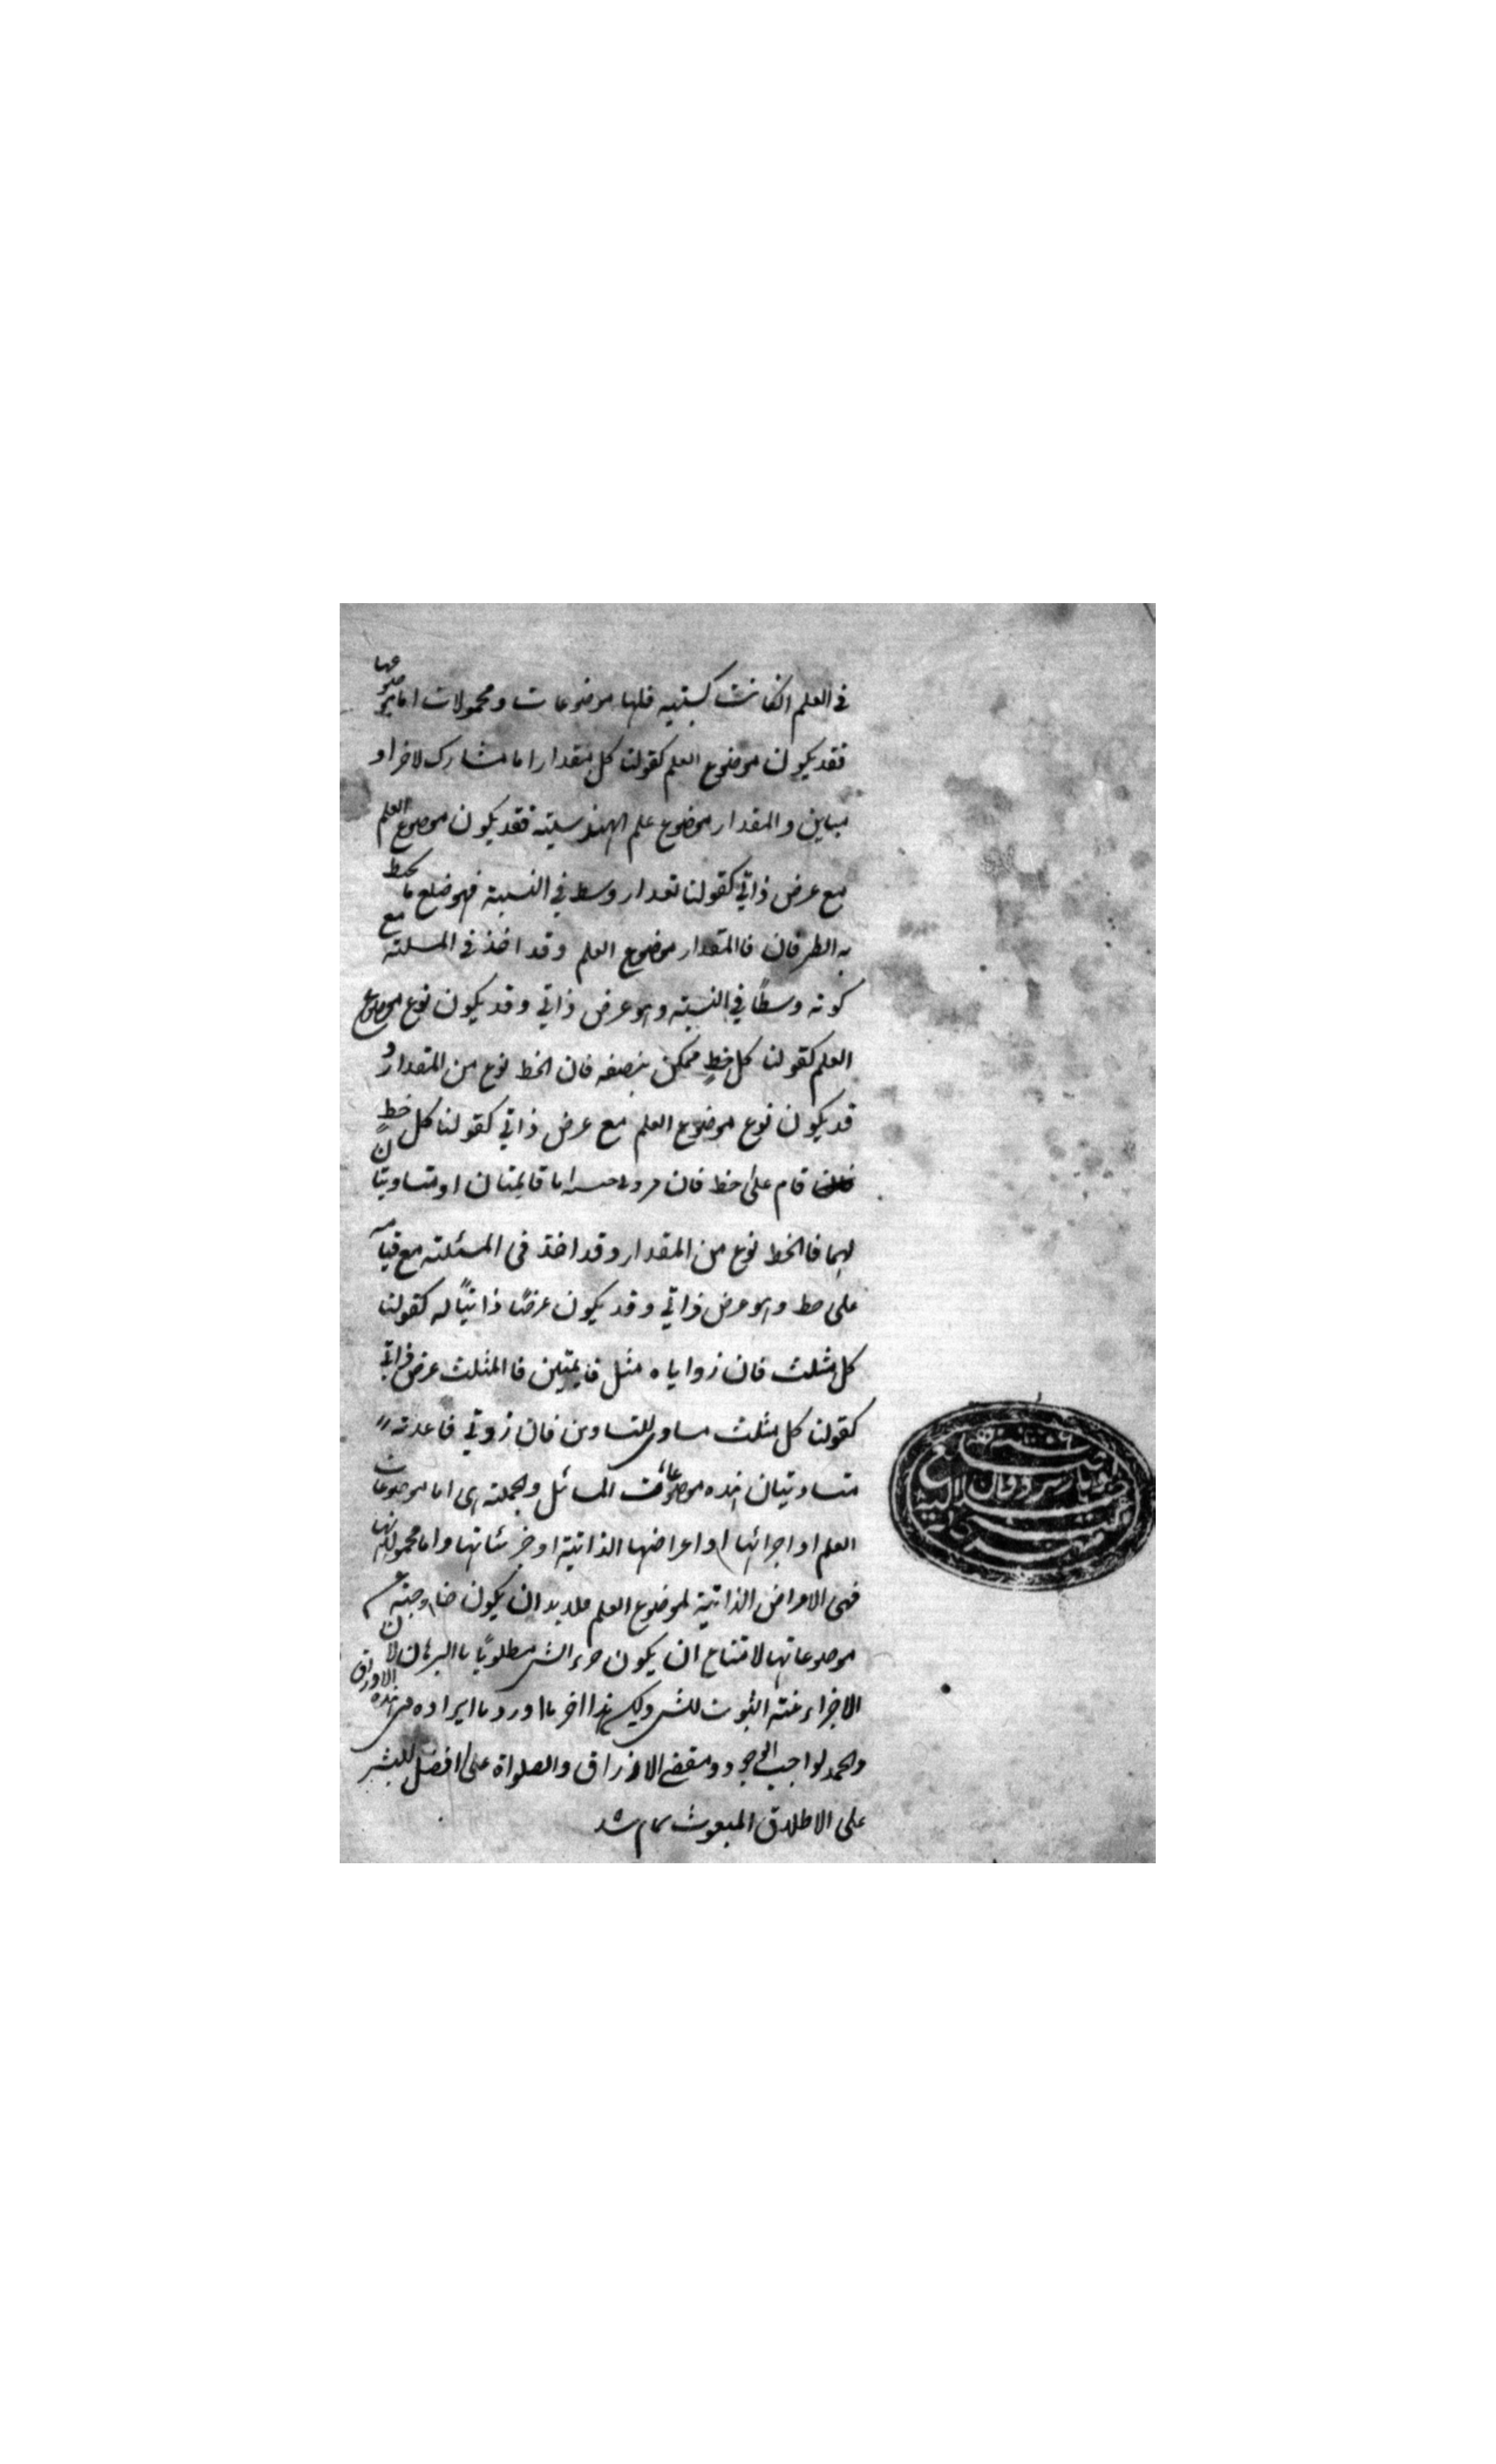 في العلم انكانت كسبيه فلها موضوعات ومحمولات اما موضوعها
فقد يكون موضوع العلم كقولنا كل مقدار اما مشارك لاخر او
مباين والمقدار موضوع علم الهندسيته فقد يكون موضوع العلم
مع عرض ذاتي كقولنا مقدار وسط في النسبته فهو ضلع ما يحيط
به الطرفان فاالمقدار موضوع العلم وقد اخذ في المسلته مع
كونه وسطاً في النسبته وهو عرض ذاتي وقد يكون نوع موضوع
العلم كقولنا كل خطٍ ممكن ينصفه فان الخط نوع من المقدار و
قد يكون نوع موضوع العلم مع عرض ذاتي كقولنا كل خط
قام على خط فان اما قايمتان او متساويتان
لهما فالخط نوع من المقدار وقد اخذ في المسئلته مع قيامه
على خط وهو عرض ذاتي وقد يكون عرضًا ذاتيًا له كقولنا
كل مثلث فان زواياه مثل قايمتين فاالمثلث عرض ذاتي
كقولنا كل مثلث مساوى المتساوين فان زوتي قاعدته
متساويتيان هذه موضوعات المسائل والجملته هي اما موضوعات
العلم او اجزائها او اعراضها الذاتية او جزئياتها واما محمولاتها
فهى الاعراض الذاتية لموضوع العلم فلابد ان يكون خارجته عن
موضوعاتها لامتناع ان يكون جزء الشى مطلوبًا باالبرهان لان
الاجزاء بينه الثبوت للشى وليكن هذا اخر ما اورد ما ايراده فى هذه الاوراق
والحمد لواجب الوجود ومفيض الارزاق والصلواة على افضل البشر
على الاطلاق المبعوث تمام شد